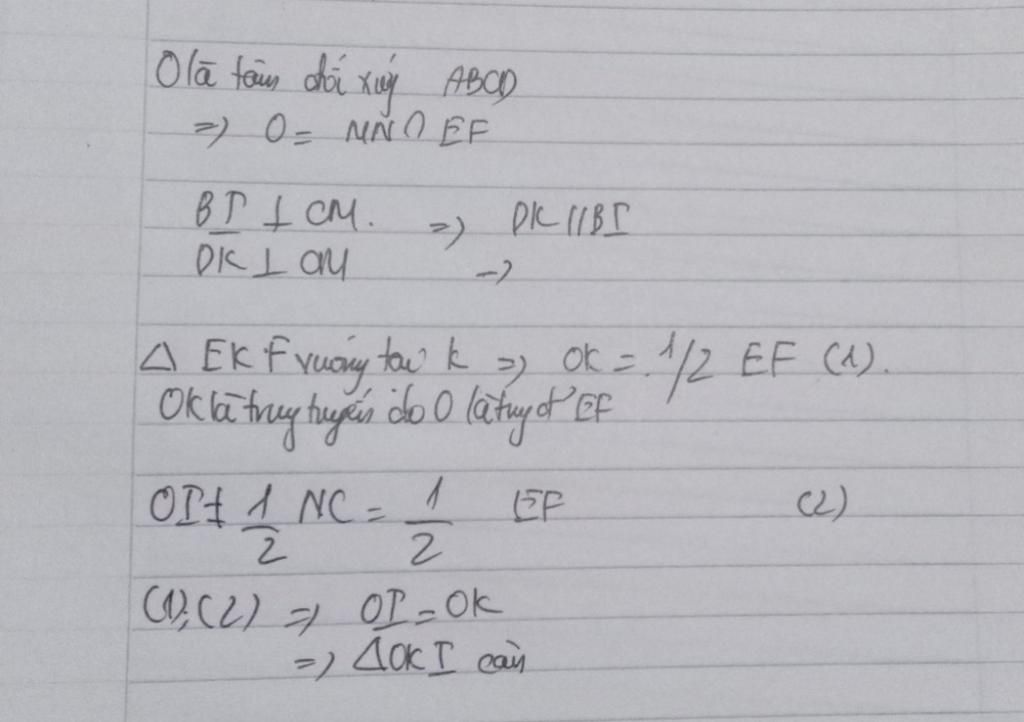 O là tâm đối xứng ABCD
=> O = MN ∩ EF
BI ⊥ CM. => DK // BI
DK ⊥ CM ->
Δ EKF vuông tại k => OK = 1/2 EF (1).
OK là trung tuyến do O là trung đ' EF
OI = 1/2 NC = 1/2 EF (2)
(1);(2) => OI = OK
=> ΔOKI cân